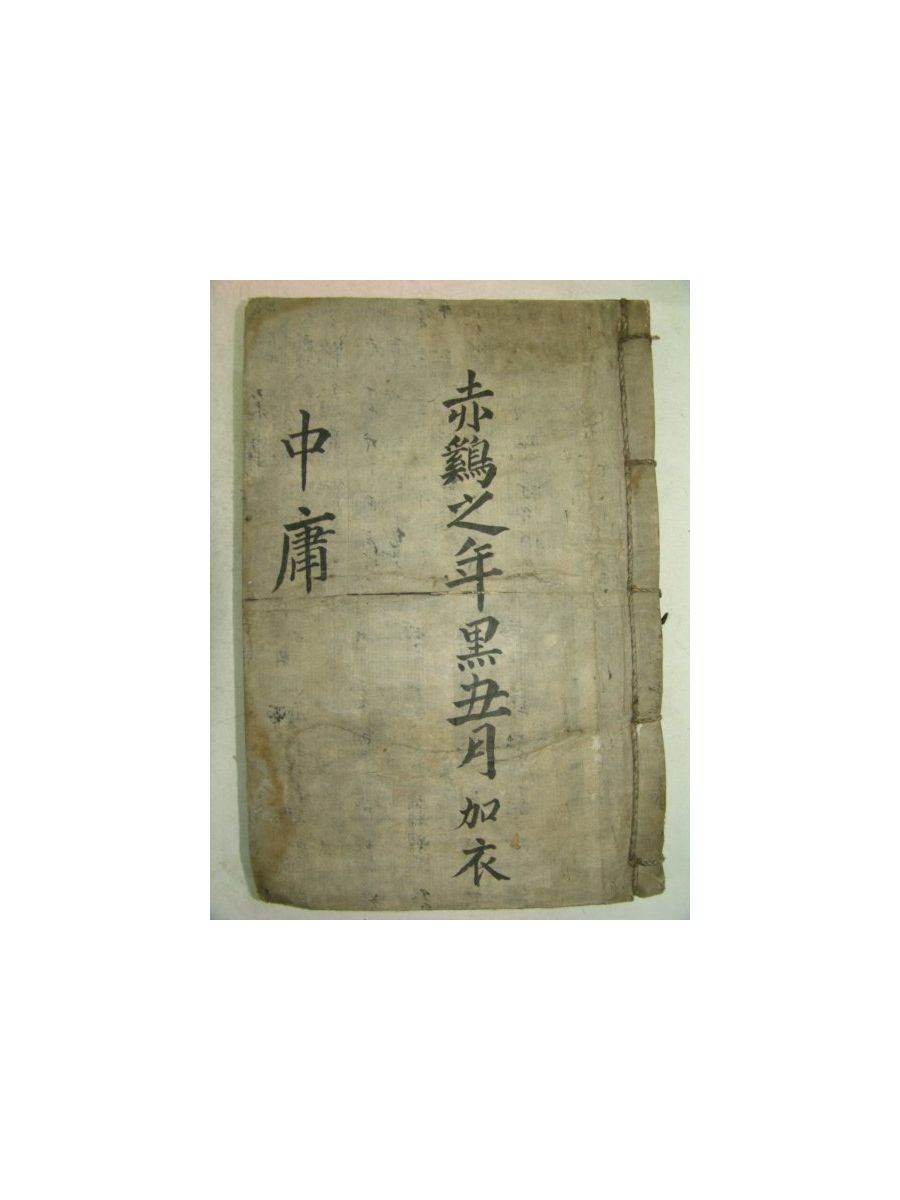 赤鷄之年黒丑月加衣
中庸